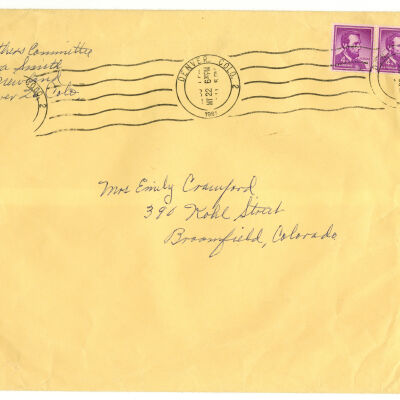 thers Committee
a Smith
Newland
ver 26 Colo
DENVER, COLO. 2
22
6 PM
1961
Mrs Emily Crawford
390 Kohl Street
Broomfield, Colorado